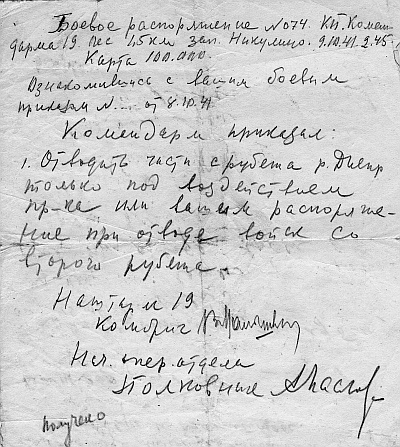 Боевое распоряжение №074. КП. Комен-
дарма 19. лес 1,5 км зап. Никулино. 9.10.41. 2.45.
Карта 100.000.
Ознакомившись с вашим боевым
приказом №... от 8.10.41
Командарм приказал:
1. Отводить части с рубежа р. Днепр
только под воздействием
пр-ка или вашем распоряже-
ние при отводе войск со
второго рубежа.
Наштарм 19
Комбриг
Нач. опер. отдела
Полковник
получено